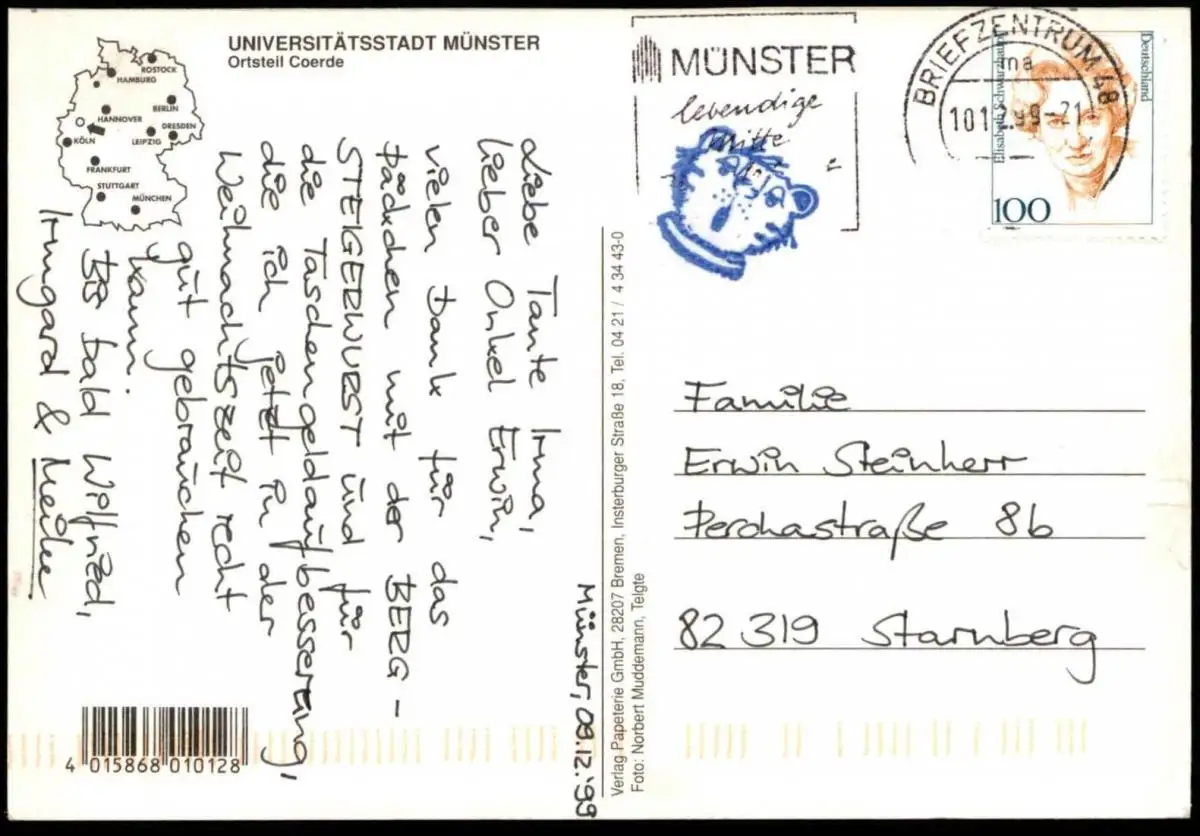 UNIVERSITÄTSSTADT MÜNSTER
Ortsteil Coerde
ROSTOCK
HAMBURG
BERLIN
HANNOVER
DRESDEN
KÖLN
LEIPZIG
FRANKFURT
STUTTGART
MÜNCHEN
Münster, 09.12.'99
Liebe Tante Irma,
lieber Onkel Erwin,
vielen Dank für das
Päckchen mit der BERG-
STEIGERWURST und für
die Taschengeldaufbesserung,
die ich jetzt in der
Weihnachtszeit recht
gut gebrauchen
kann.
Bis bald Wilfried,
Irmgard & Meike
4 015868 010128
Verlag Papeterie GmbH, 28207 Bremen, Insterburger Straße 18, Tel. 04 21 / 4 34 43-0
Foto: Norbert Muddemann, Telgte
MÜNSTER
lebendige
Mitte
BRIEFZENTRUM 48
ma
-21
Deutschland
Elisabeth Schwarzhaupt
100
Familie
Erwin Steinherr
Perchastraße 8b
82319 Starnberg